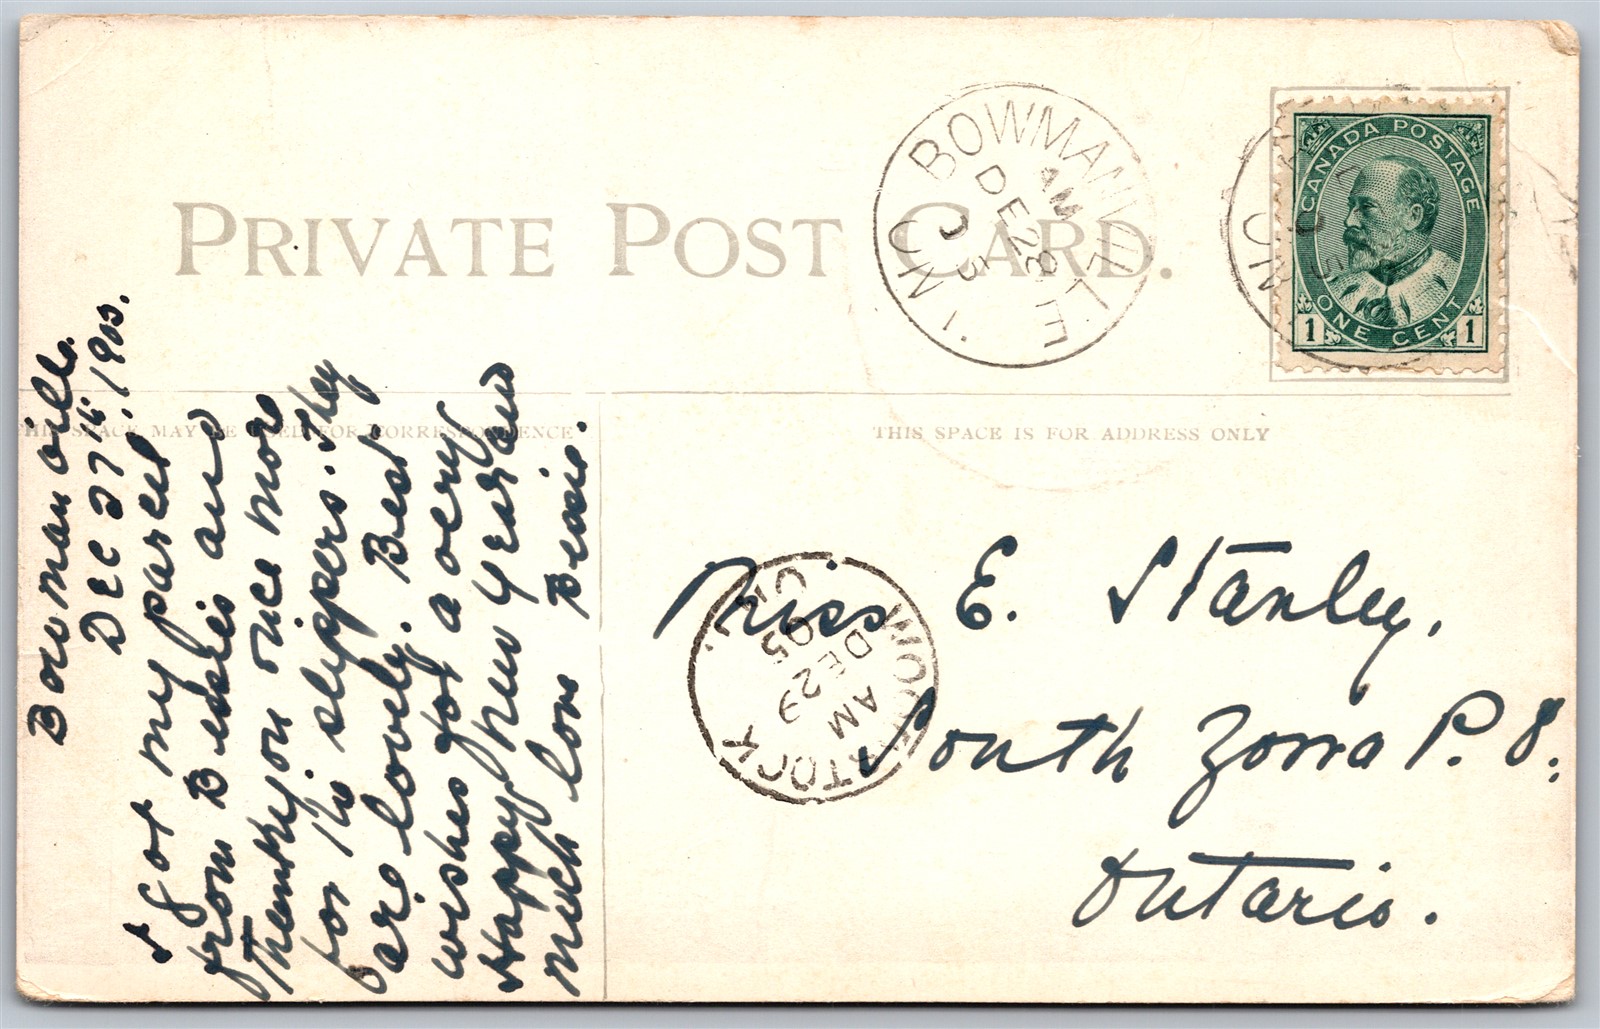 PRIVATE POST CARD.
BOWMANVILLE
AM
DE 28
05
ONT
CANADA POSTAGE
1 ONE CENT 1
ONT
THIS SPACE MAY BE USED FOR CORRESPONDENCE
THIS SPACE IS FOR ADDRESS ONLY
Bowmanville.
Dec 27th, 1905.
I got my parcel
from Bessie's and
Thank you once more
for the slippers. They
are lovely. Best
wishes for a very
Happy New Year and
much love Bessie.
Miss E. Stanley,
South Zorra P. O.
Ontario.
WOODSTOCK
AM
DE 29
05
ONT